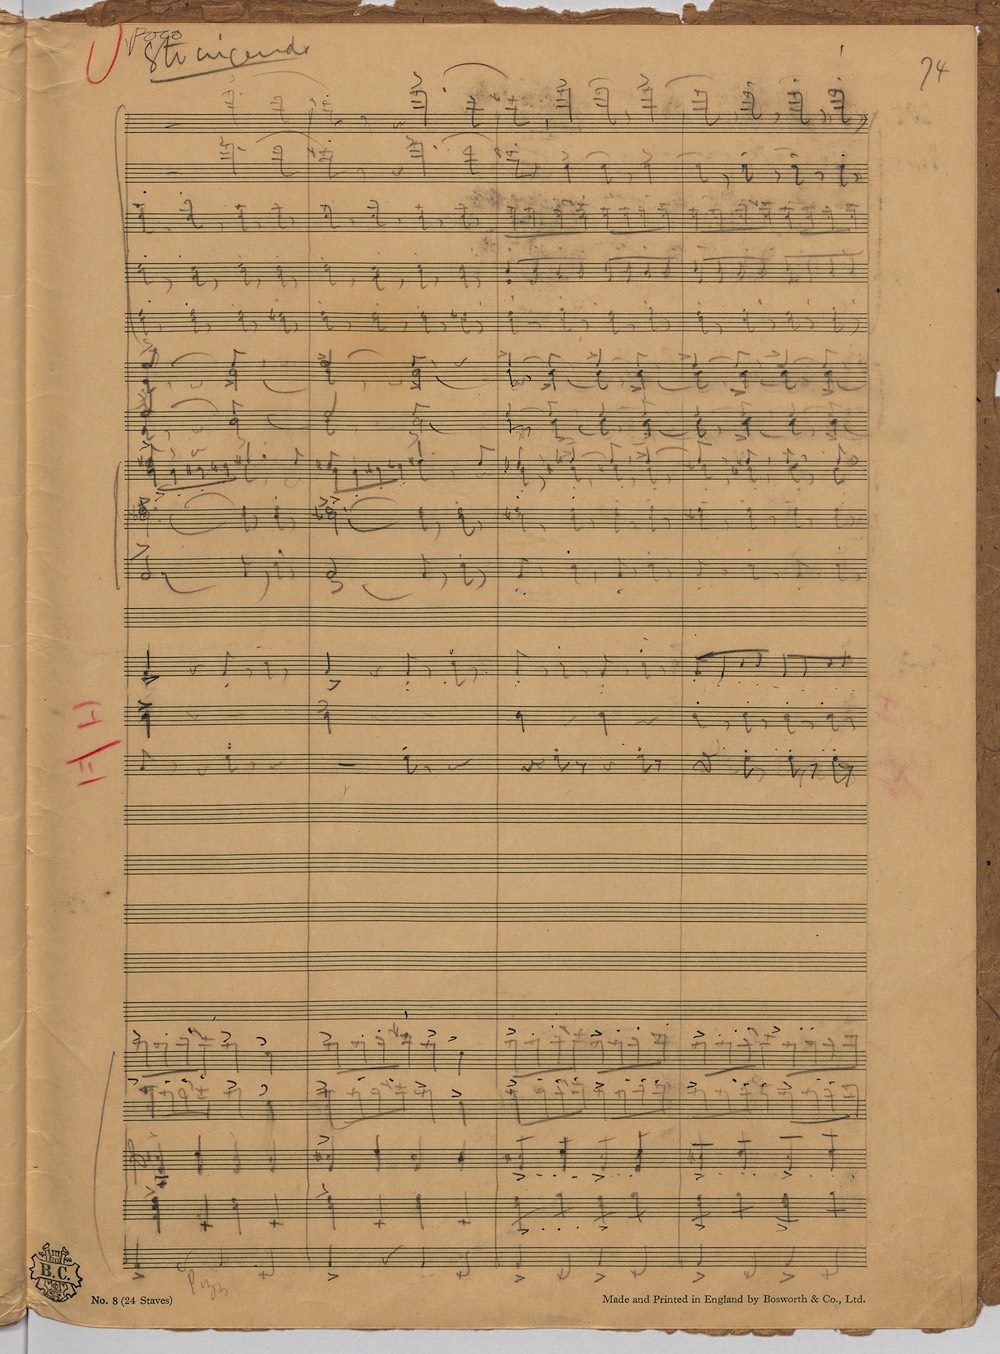 Poco
Stringendo
74
Pizz
B.C.
No. 8 (24 Staves)
Made and Printed in England by Bosworth & Co., Ltd.